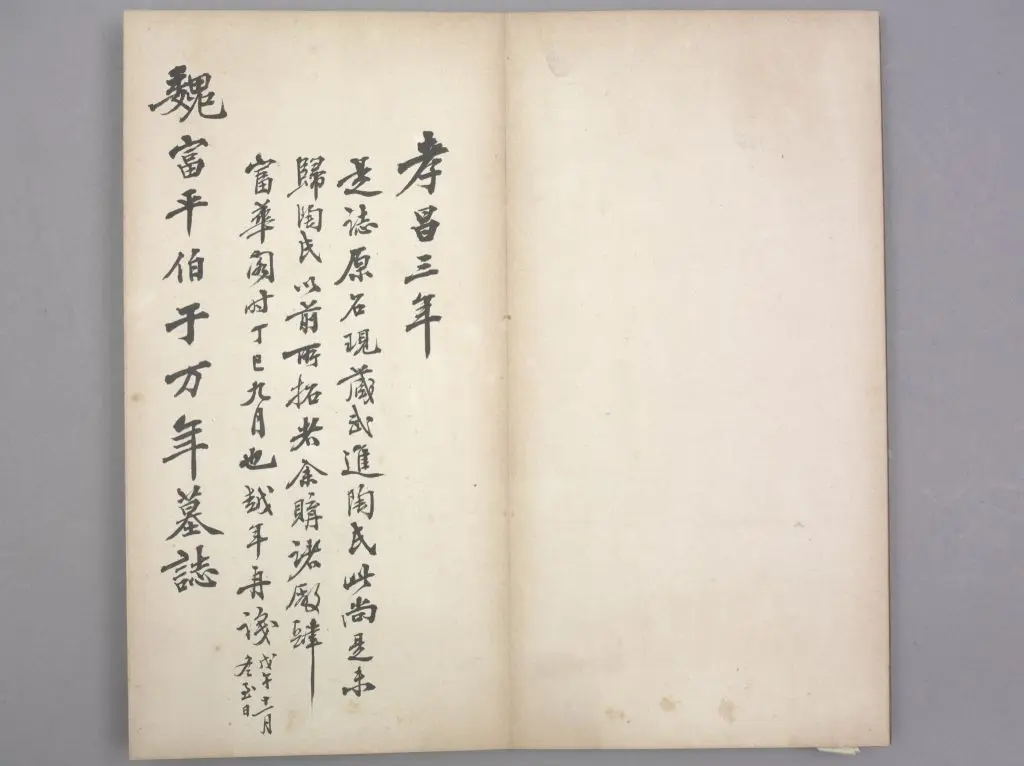 孝昌三年
是誌原石現藏武進陶氏此尚是未
歸陶氏以前所拓者余購諸廠肆
富華閣時丁巳九月也越年再識
戊午十一月
冬至日
魏富平伯于万年墓誌